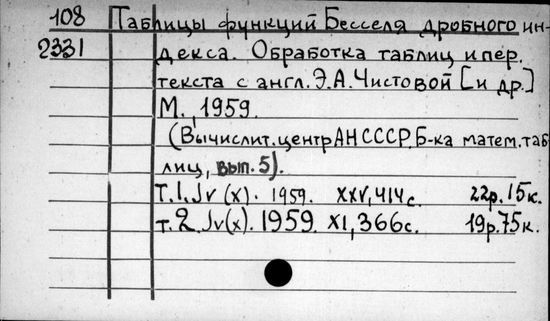 108 Таблицы функций Бесселя дробного ин-
2331 декса. Обработка таблиц и пер.
текста с англ. Э.А. Чистовой [и др.]
М., 1959.
(Вычислит. центр АН СССР. Б-ка матем. таб-
лиц, вып. 5).
Т.1. Jv (x). 1959. XXV, 414 с. 22р. 15к.
т.2. Jv(x). 1959. XI, 366с. 19р.75к.